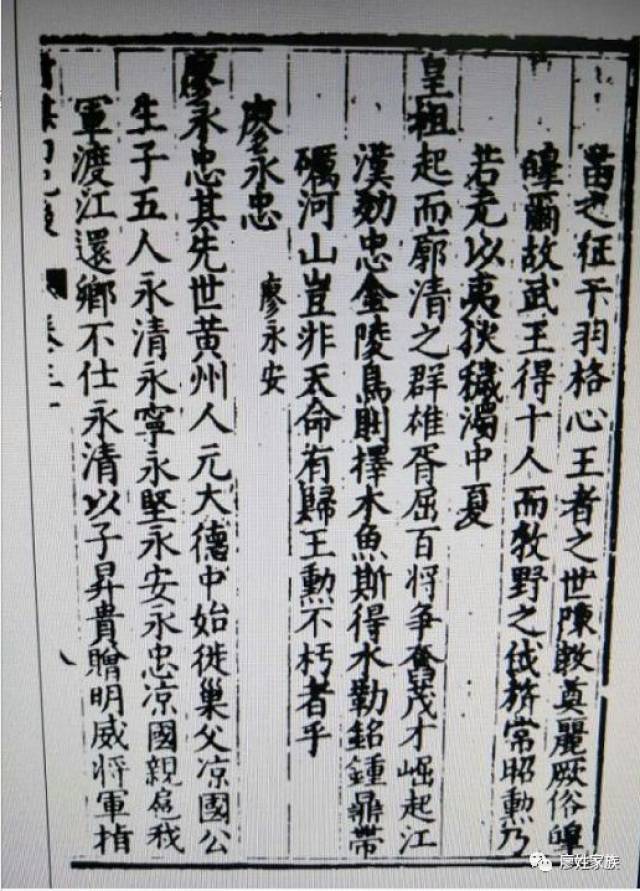 苗之征干羽格心王者之世陳教奠麗厥俗皥
皥爾故武王得十人而牧野之伐旂常昭勳乃
若元以夷狄穢濁中夏
皇祖起而廓清之群雄胥屈百將爭奮茂才崛起江
漢効忠金陵鳥則擇木魚斯得水勒銘鍾鼎帶
礪河山豈非天命有歸王勳不朽者乎
廖永忠 廖永安
廖永忠其先世黃州人元大德中始徙巢父凉國公
生子五人永清永寧永堅永安永忠凉國親扈我
軍渡江還鄉不仕永清以子昇貴贈明威將軍指
卷三十一
廖姓家族